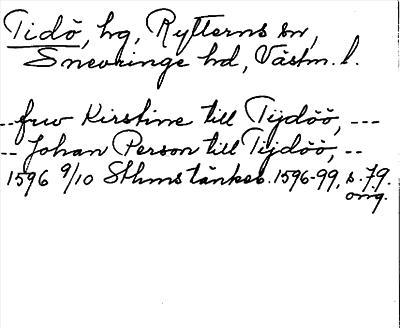 Tidö, hg, Rytterns sn,
Snevringe hd, Västm. l.
-- frw Kirstine till Tijdöö, ---
-- Johan Person till Tijdöö, --
1596 9/10 Sthms tänkeb. 1596-99, s. 79.
orig.